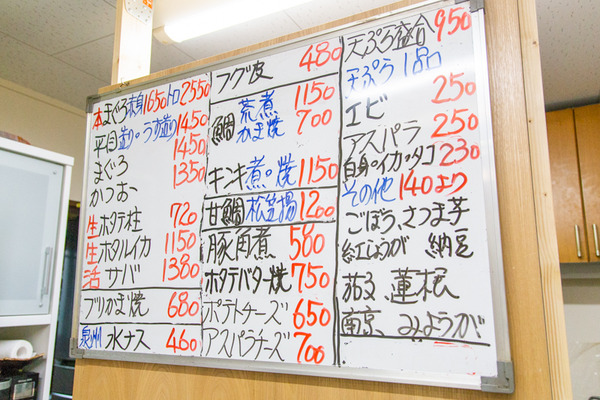 本まぐろ赤身1650トロ2550
平目造り・うす造り1450
まぐろ 1450
かつお 1350
生ホタテ柱 720
生ホタルイカ 1150
活サバ 1380
ブリかま焼 680
泉州水ナス 460
フグ皮 480
鯛荒煮 1150
かま焼 700
キンキ煮・焼 1150
甘鯛松笠揚 1200
豚角煮 580
ホタテバター焼 750
ポテトチーズ 650
アスパラチーズ 700
天ぷら盛合 950
天ぷら 180
エビ 250
アスパラ 250
白身・イカ・タコ 230
その他 140より
ごぼう、さつま芋
紅しょうが 納豆
茄子、蓮根
南京、みょうが